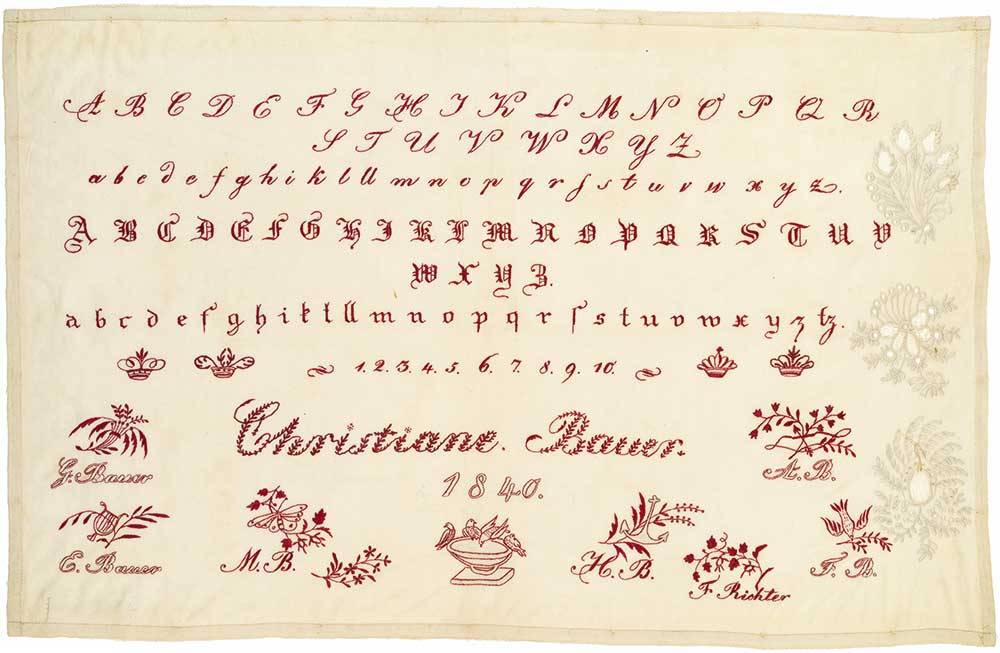 A B C D E F G H I K L M N O P Q R
S T U V W X Y Z
a b c d e f g h i k l ll m n o p q r ſ s t u v w x y z.
A B C D E F G H I K L M N O P Q R S T U V
W X Y Z.
a b c d e f g h i k l ll m n o p q r ſ s t u v w x y z tz.
1. 2. 3. 4. 5. 6. 7. 8. 9. 10.
Christiane. Bauer.
G. Bauer
A. B.
1840.
E. Bauer
M. B.
H. B.
F. B.
F Richter